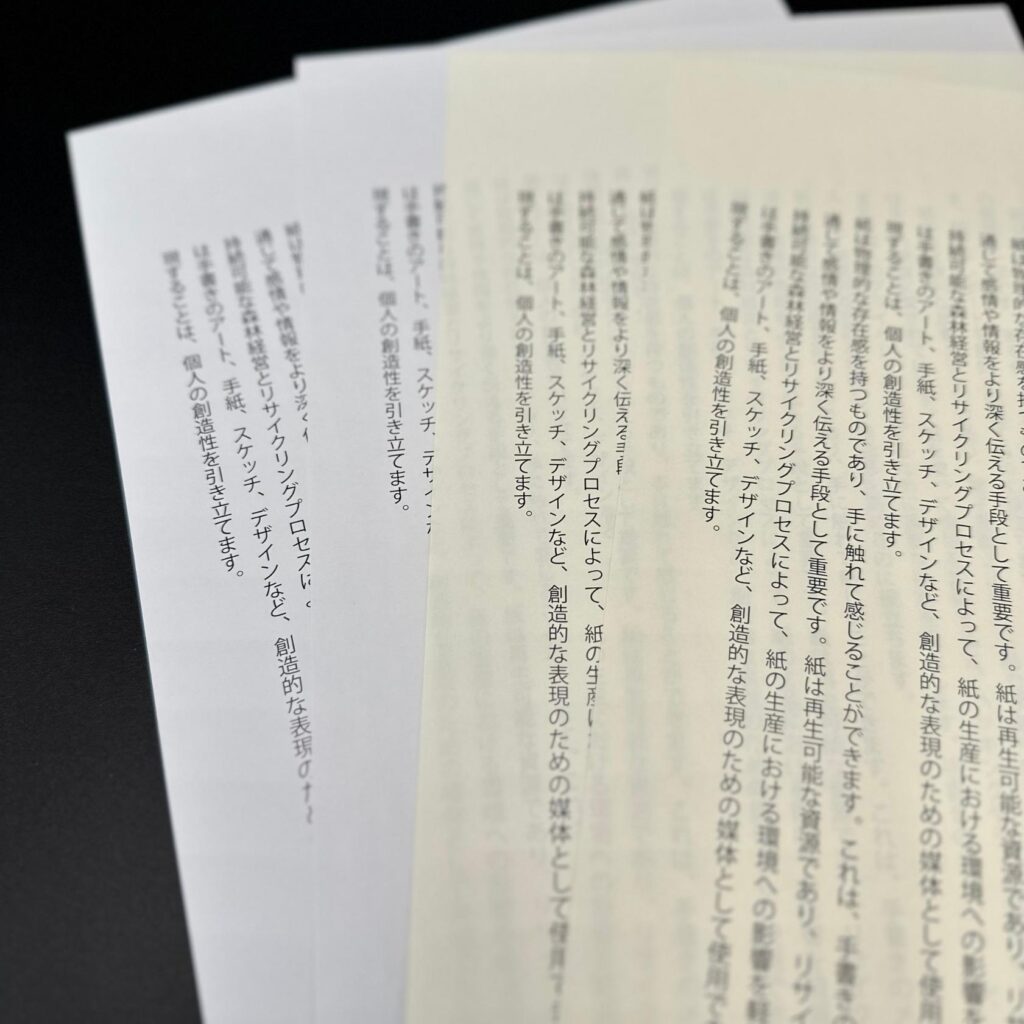 紙は物理的な存在感を持つもの
通じて感情や情報をより深く伝える手段として重要です。紙は再生可能な資源であり、リサ
持続可能な森林経営とリサイクリングプロセスによって、紙の生産における環境への影響を
は手書きのアート、手紙、スケッチ、デザインなど、創造的な表現のための媒体として使用
現することは、個人の創造性を引き立てます。
紙は物理的な存在感を持つものであり、手に触れて感じることができます。これは、手書きの
通じて感情や情報をより深く伝える手段として重要です。紙は再生可能な資源であり、リサイ
持続可能な森林経営とリサイクリングプロセスによって、紙の生産における環境への影響を軽
は手書きのアート、手紙、スケッチ、デザインなど、創造的な表現のための媒体として使用で
現することは、個人の創造性を引き立てます。
通じて感情や情報をより深く伝える手段
持続可能な森林経営とリサイクリングプロセスによって、紙の生産に
は手書きのアート、手紙、スケッチ、デザインなど、創造的な表現のための媒体として使用
現することは、個人の創造性を引き立てます。
は手書きのアート、手紙、スケッチ、デザイン
現することは、個人の創造性を引き立てます。
通じて感情や情報をより深く
持続可能な森林経営とリサイクリングプロセスに
は手書きのアート、手紙、スケッチ、デザインなど、創造的な表現のた
現することは、個人の創造性を引き立てます。